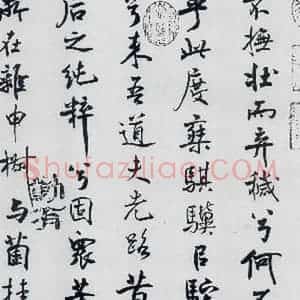 不撫壯而弃穢兮何不
乎此度乘騏驥㠯馳
兮来吾道夫先路昔
后之純粹兮固衆芳
所在雜申椒与菌桂
Shufaziliao.COM